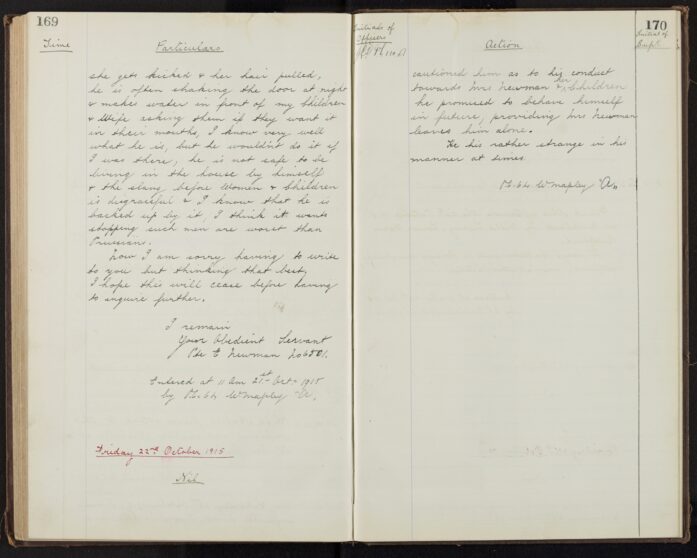 169
Time
Particulars
she gets kicked & her hair pulled,
he is often shaking the door at night
& makes water in front of my children
& Wife asking them if they want it
in their mouths, I know very well
what he is, but he wouldn't do it if
I was there, he is not safe to be
living in the house by himself
& the slang before Women & Children
is disgraceful & I know that he is
backed up by it, I think it wants
stopping such men are worst than
Prussians.
Now I am sorry having to write
to you but thinking that best,
I hope this will cease before having
to inquire further.
I remain
Your Obedient Servant
Pte E Newman No 6501.
Entered at 11 am 21st Oct 1915
by P.C. 64 W Mapley
Friday 22nd October 1915
Nil
170
Initials of
Officers
Action
Initial of
Supt
cautioned him as to his conduct
towards Mrs Newman & her Children
he promised to behave himself
in future, providing Mrs Newman
leaves him alone.
He his rather strange in his
manner at times.
P.C. 64 W Mapley